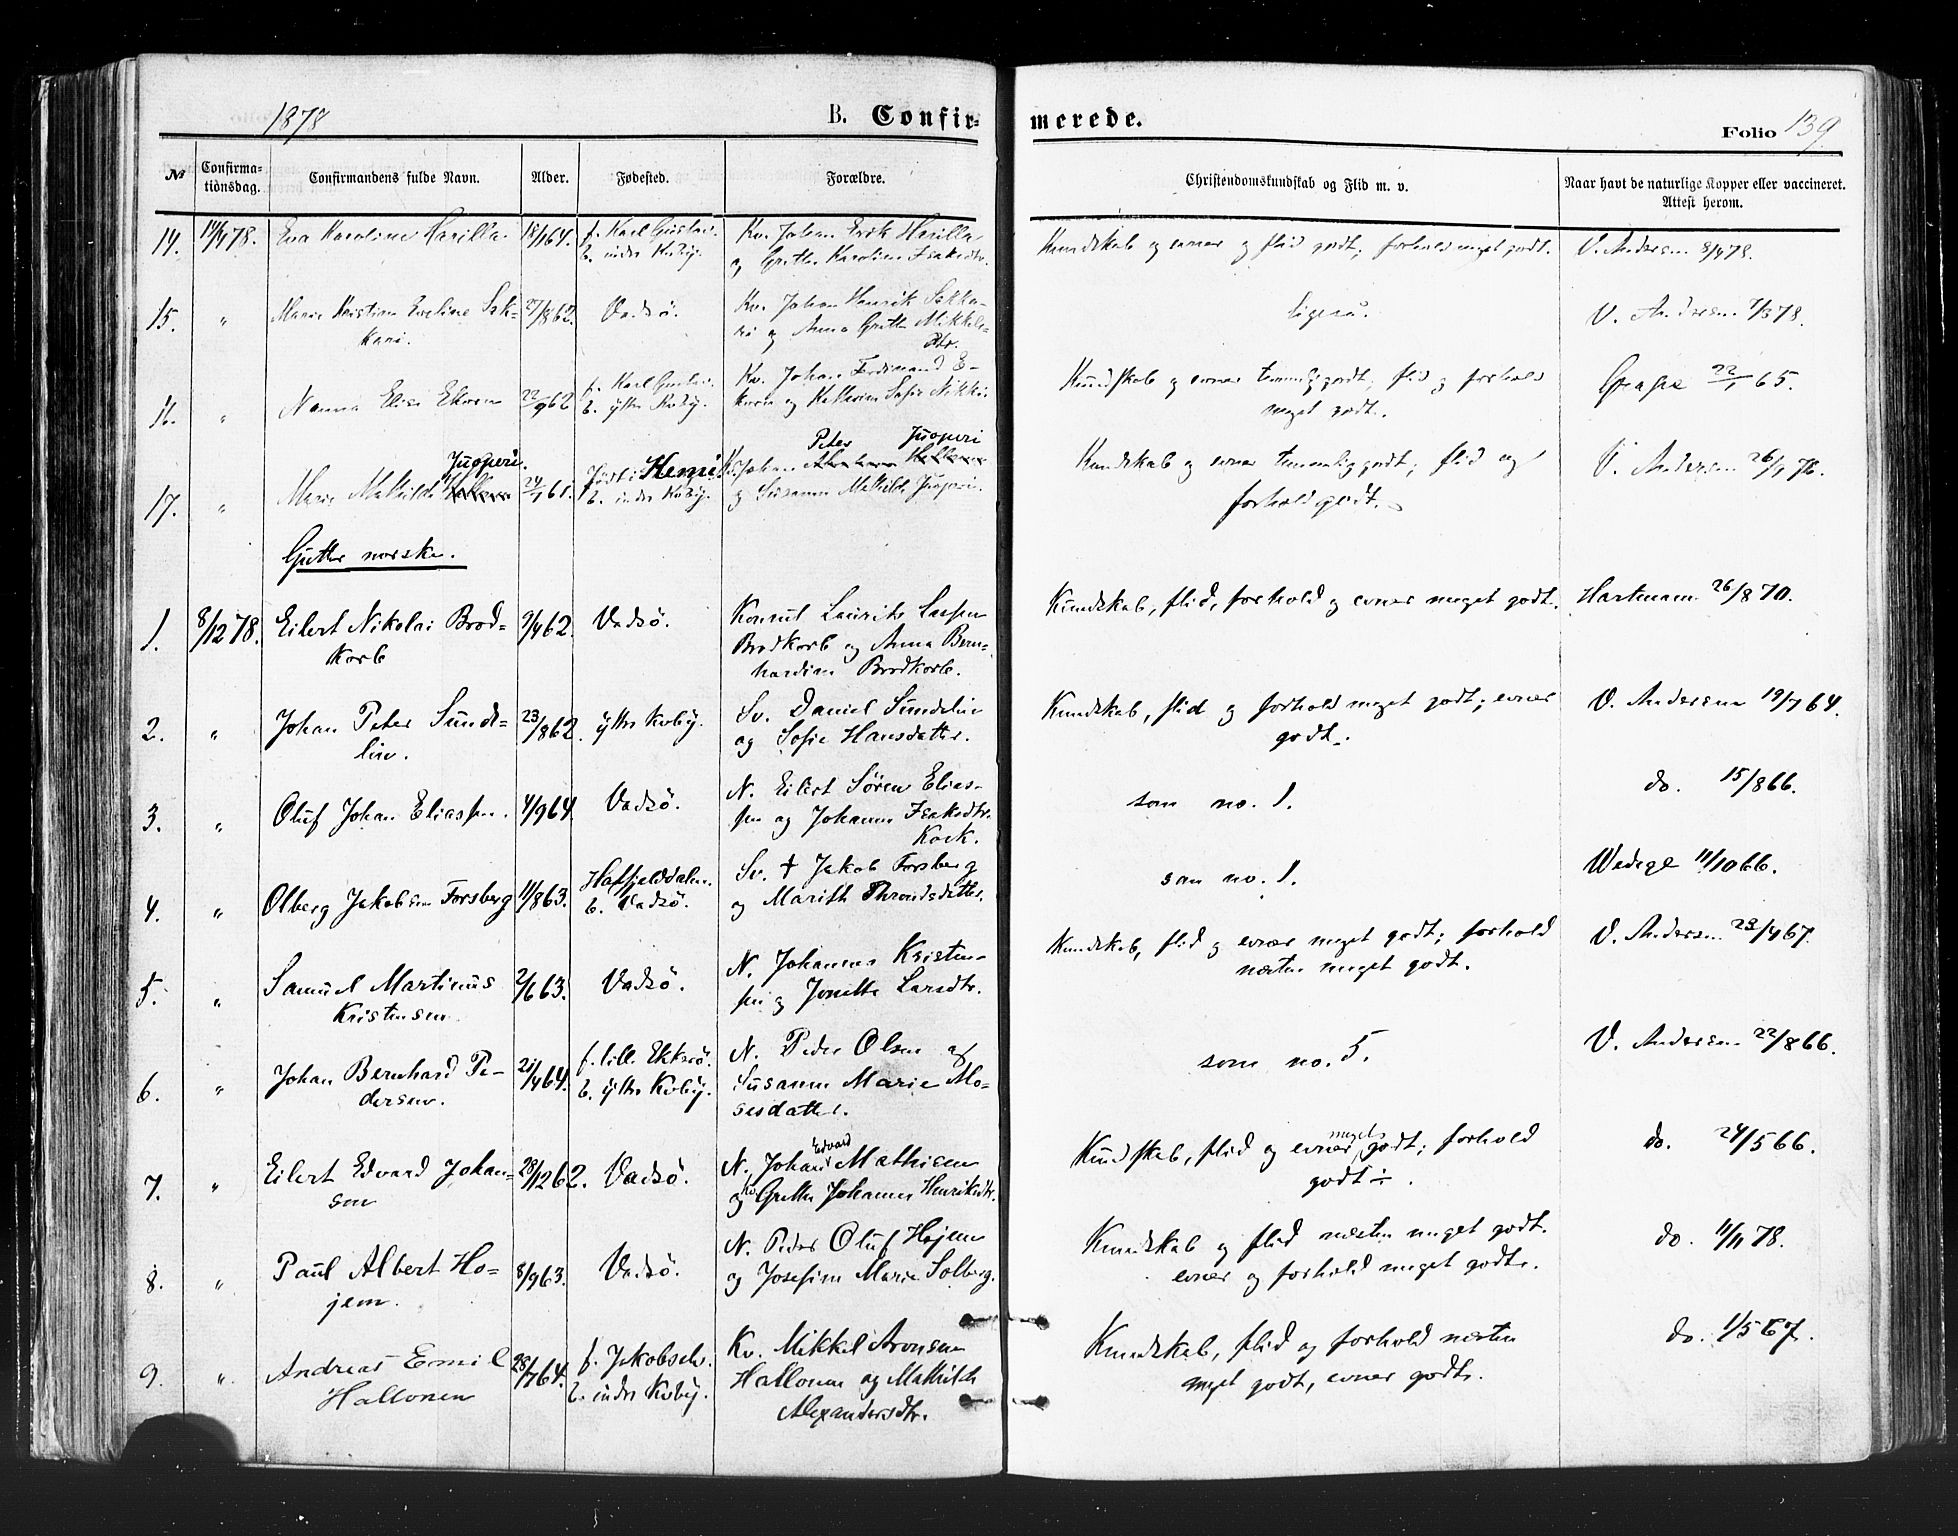 1878
B. Confir-
merede.
Folio 139
№
Confirma-
tionsdag.
Confirmandens fulde Navn.
Alder.
Fødested.
Forældre.
Christendomskundskab og Flid m. v.
Naar havt de naturlige Kopper eller vaccineret.
Attest herom.
14. 14/4 78. Eva Karoline Harilla 18/1 64. f. Karl Gustav. Kv. Johan Erik Harilla Kundskab og evner og flid godt; forhold meget godt. V. Andersen 8/4 78.
b. indre Kvby. og Grethe Karoline Isaksdtr.
15. " Marie Kristine Eveline Sak- 27/8 62. Vadsö. Kv. Johan Henrik Sakka- Ligesaa. V. Andersen 7/3 78.
kari. ri og Anna Grethe Mikkels-
Dtr.
16. " Nanna Elise Ekoren 22/9 62 f. Karl Gustav. Kv. Johan Ferdinand E- Kundskab og evner temmelig godt, flid og forhold Grape 22/1 65.
b. ytre Kvby. koren og Katharine Sofie Nikki- meget godt.
Juoperi. Peter Juoperi
17. " Marie Mathilde 24/1 61. Født i Kemi Kv. Johan Kundskab og evner temmelig godt; flid og V. Andersen 26/1 76.
b. indre Kvby. og Susanna Mathilde Juoperi. forhold godt.
Gutter norske.
1. 8/12 78. Eilert Nikolai Brod- 9/4 62. Vadsö. Konsul Laurits Kundskab, flid, forhold og evner meget godt. Hartmann 26/8 70.
korb Brodkorb og Anna Bern-
hardine Brodkorb.
2. " Johan Peter Sunde- 23/8 62. ytre Kvby. Sv. Daniel Sundelin Kundskab, flid og forhold meget godt; evner V. Andersen 19/7 64.
lin. og Sofie Hansdatter. godt.
3. " Oluf Johan Eliassen. 4/9 64. Vadsö. N. Eilert Sören Elias- som no. 1. do. 15/8 66.
sen og Johanne Isaksdtr.
Kock.
4. " Olberg Jakobsen Forsberg 11/8 63. Hatfjelddalen. Sv. † Jakob Forsberg som no. 1. Wedege 11/10 66.
b. Vadsö. og Marith Throndsdatter.
5. " Samuel Martinus 2/6 63. Vadsö. N. Johannes Kristen- Kundskab, flid og evner meget godt; forhold V. Andersen 23/4 67.
Kristensen sen og Jonette Larsdtr. næsten meget godt.
6. " Johan Bernhard Pe- 21/4 64. f. lille Ekkerö. N. Peder Olsen og som no. 5. V. Andersen 22/8 66.
dersen. b. ytre Kvby. Susanne Marie Mo-
sesdatter.
7. " Eilert Edvard Johan- 28/12 62. Vadsö. N. Johan Edvard Mathisen Kundskab, flid og evner meget godt; forhold do. 24/5 66.
sen og Kv. Grethe Johanne Henriksdtr. godt ÷.
8. " Paul Albert Ho- 8/9 63. Vadsö. N. Peder Oluf Hojem Kundskab og flid næsten meget godt. do. 11/11 78.
jem. og Josefine Marie Solberg. evner og forhold meget godt.
9. " Andreas Emil 28/7 64. f. Jakobselv. Kv. Mikkel Aronsen Kundskab, flid og forhold næsten do. 1/5 67.
Hallonen b. indre Kvby. Hallonen og Mathilde meget godt, evner godt.
Alexandersdtr.